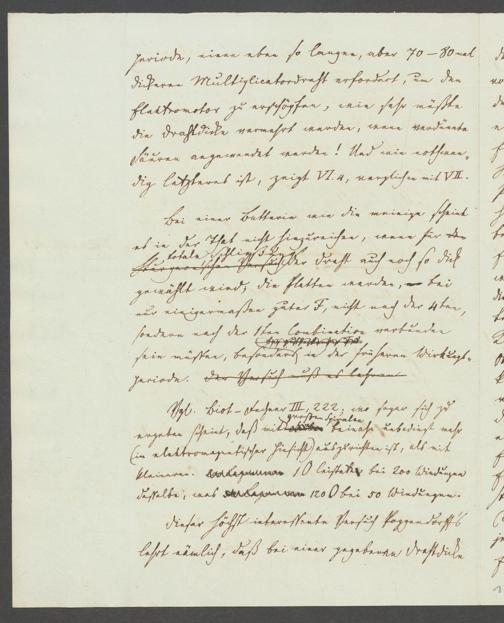 periode, einen eben so langen, aber 70–80 mal
dickeren Multiplicatordraht erfordert, um den
Elektromotor zu erschöpfen, wie sehr müßte
die Drahtdicke vermehrt werden, wenn verdünnte
Säuren angewendet werden! Und wie nothwen-
dig letzteres ist, zeigt VI.4, verglichen mit VII.
Bei einer Batterie wie die meinige scheint
es in der That nicht hinzureichen, wenn für
totale
der Draht auch noch so dick
gewählt wird, die Platten werden, bei
nur einigermaßen guter F, nicht nach der 4ten,
sondern nach der 1ten Combination verbunden
sein müssen, besonders in der früheren Wirkungs-
periode. Der Versuch muß es lehren
Vgl. Biot-Fechner III, 222; wo sogar sich zu
großen Spiralen
ergeben scheint, daß mit beinahe unbedingt mehr
(in elektromagnetischer Hinsicht) auszurichten ist, als mit
kleineren. 10 leistete bei 200 Windungen
dasselbe, was 120 bei 50 Windungen.
Dieser höchst interessante Versuch Poggendorff's
lehrt nämlich, daß bei einer gegebenen Drahtdicke